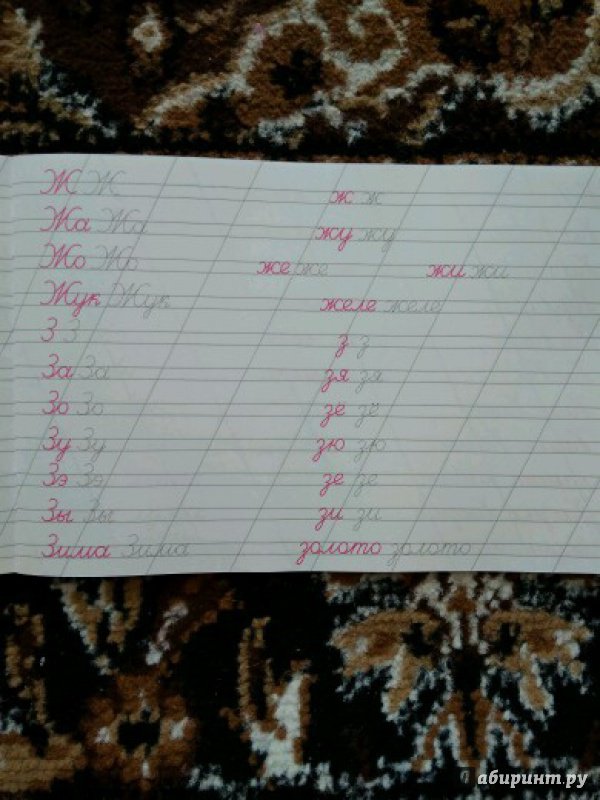 Ж Ж ж ж
Жа Жа жу жу
Жо Жо же же жи жи
Жук Жук желе желе
З З з з
За За зя зя
Зо Зо зё зё
Зу Зу зю зю
Зэ Зэ зе зе
Зы Зы зи зи
Зима Зима золото золото
абиринт.ру